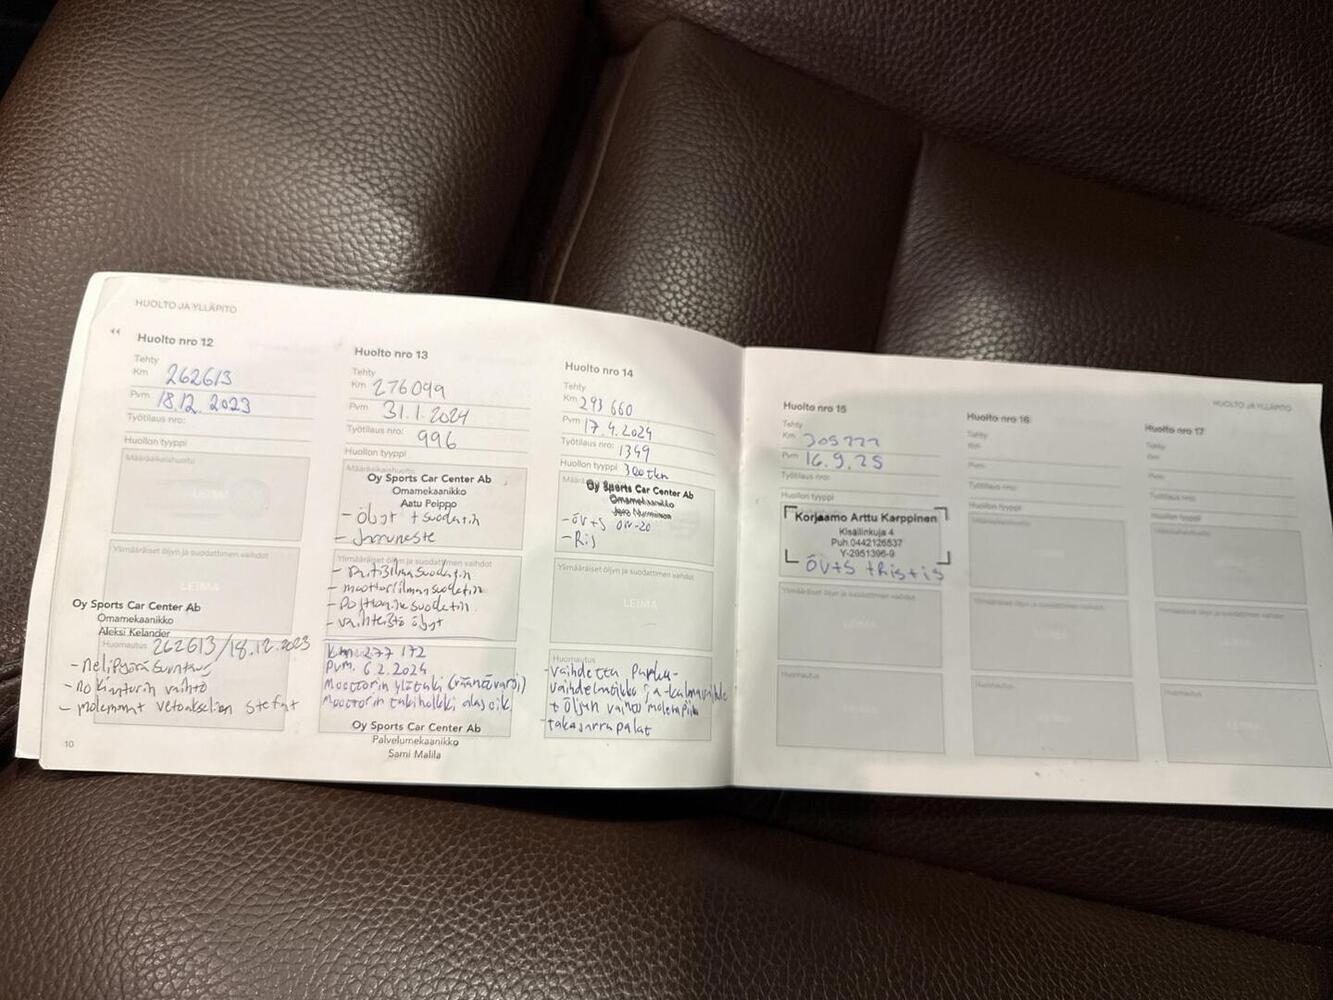 HUOLTO JA YLLÄPITO
Huolto nro 12
Tehty
Km 262613
Pvm 18.12.2023
Työtilaus nro:
Huollon tyyppi
Määräaikaishuolto
LEIMA
Ylimääräiset öljyn ja suodattimen vaihdot
LEIMA
Oy Sports Car Center Ab
Omamekaanikko
Aleksi Kelander
Huomautus 262613/18.12.2023
- Nelipyöräsuuntaus
- vaihto
- molemmat vetoakselien
10
Huolto nro 13
Tehty
Km 276099
Pvm 31.1.2024
Työtilaus nro: 996
Huollon tyyppi
Määräaikaishuolto
Oy Sports Car Center Ab
Omamekaanikko
Aatu Peippo
- Öljyt + suodatin
- Jarruneste
Ylimääräiset öljyn ja suodattimen vaihdot
- raitisilmansuodatin
- moottorilmansuodatin
- Polttoainesuodatin
- vaihteisto öljyt
km. 277 172
Pvm. 6.2.2024
Moottorin ylätuki
Moottorin tukiholkki alas oik
Oy Sports Car Center Ab
Palvelumekaanikko
Sami Malila
Huolto nro 14
Tehty
Km 293 660
Pvm 17.4.2024
Työtilaus nro: 1349
Huollon tyyppi 300tkm
Oy Sports Car Center Ab
Omamekaanikko
- ÖV+S 0W-20
- Ris
Ylimääräiset öljyn ja suodattimen vaihdot
LEIMA
Huomautus
- vaihdettu
+ öljyn vaihto molempiin
- takajarrupalat
HUOLTO JA YLLÄPITO
Huolto nro 15
Tehty
Km
Pvm 16.9.25
Työtilaus nro:
Huollon tyyppi
Korjaamo Arttu Karppinen
Kisällinkuja 4
Puh.0442126537
Y-2951396-9
ÖV+S +Ris+is
Ylimääräiset öljyn ja suodattimen vaihdot
Huomautus
Huolto nro 16
Tehty
Km
Pvm
Työtilaus nro:
Huollon tyyppi
Määräaikaishuolto
Ylimääräiset öljyn ja suodattimen vaihdot
Huomautus
Huolto nro 17
Tehty
Km
Pvm
Työtilaus nro:
Huollon tyyppi
Määräaikaishuolto
Ylimääräiset öljyn ja suodattimen vaihdot
Huomautus